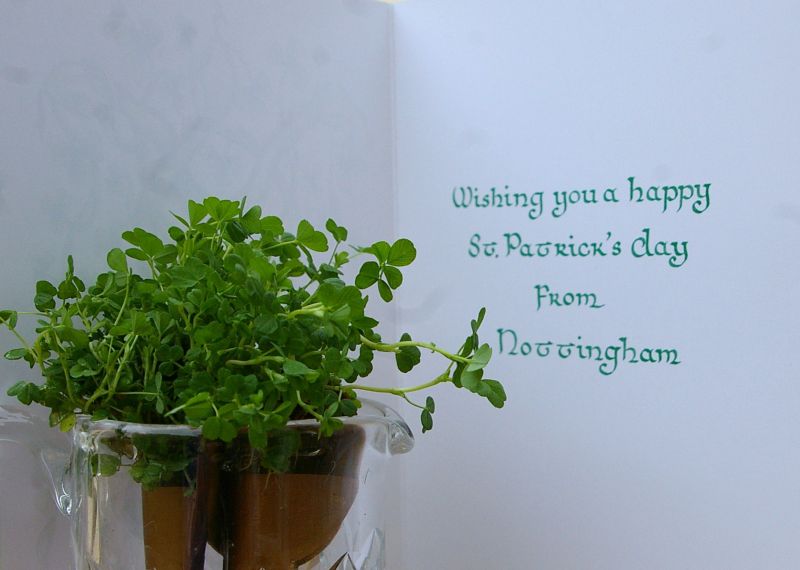 Wishing you a happy
St. Patrick's day
From
Nottingham